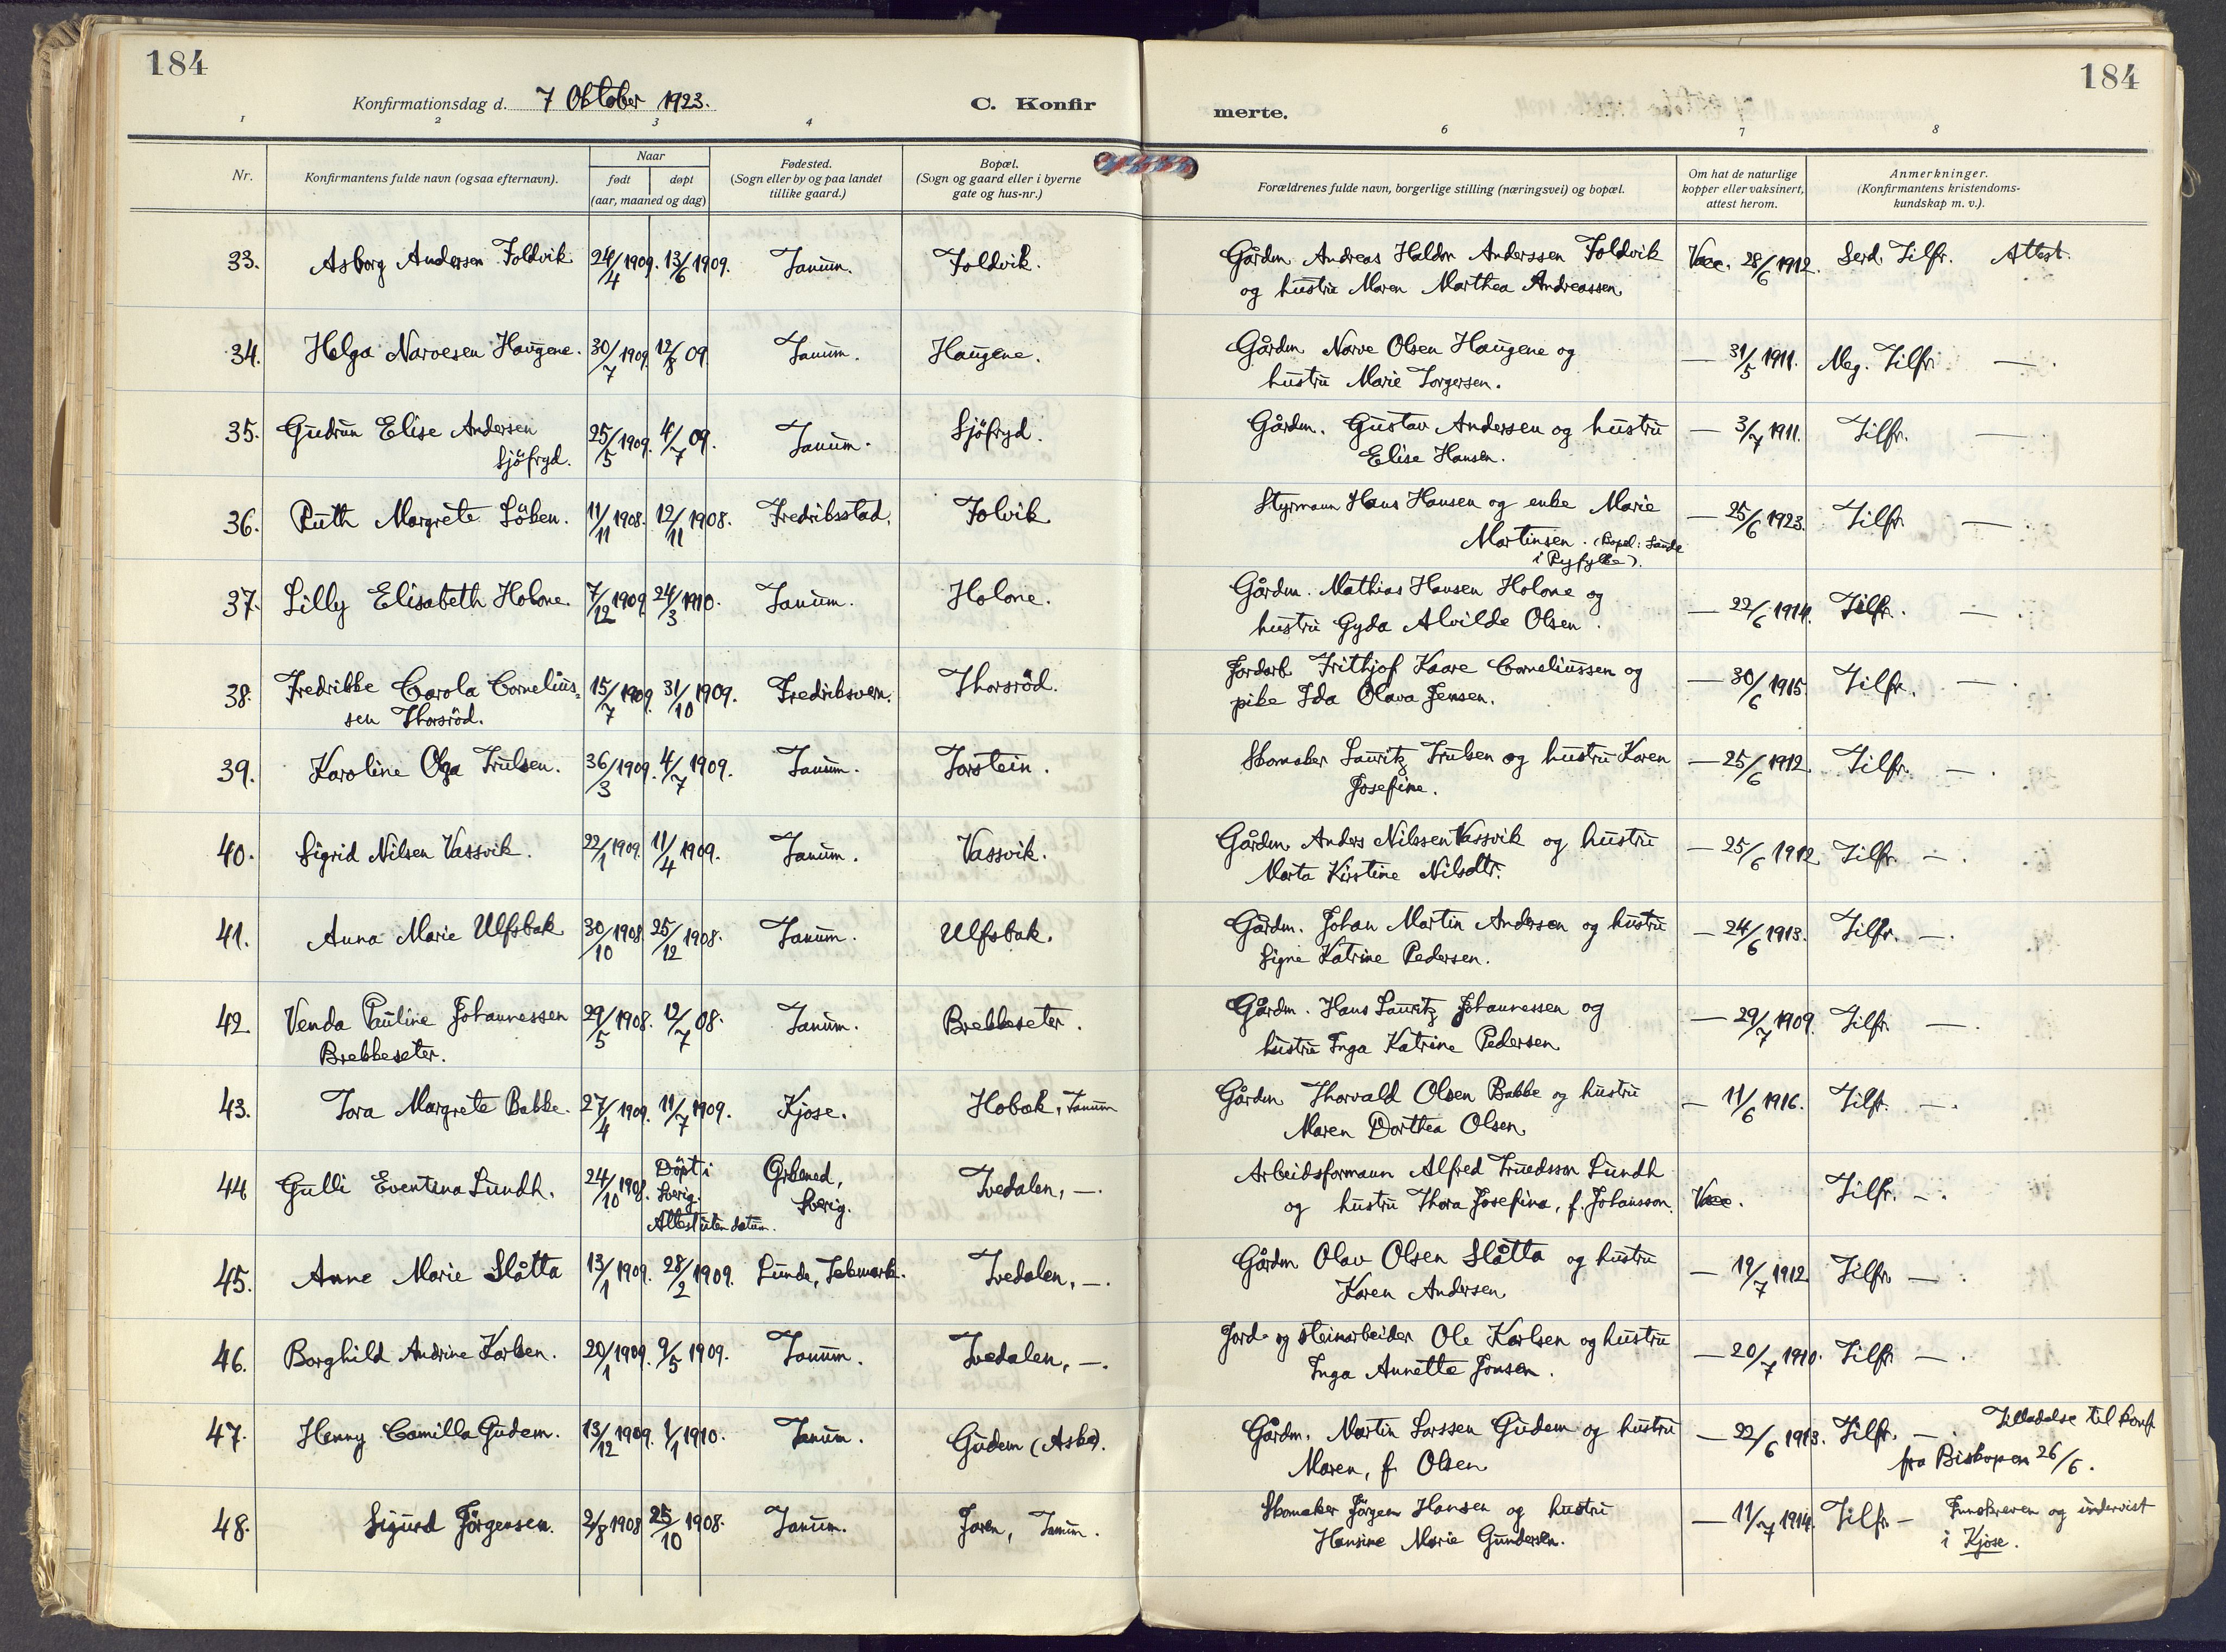 184
184
Konfirmationsdag d. 7 Oktober 1923.
C. Konfir
merte.
1 2 3 4 6 7 8
Nr.
Konfirmantens fulde navn (ogsaa efternavn).
Naar
født døpt
(aar, maaned og dag)
Fødested.
(Sogn eller by og paa landet
tillike gaard.)
Bopæl.
(Sogn og gaard eller i byerne
gate og hus-nr.)
Forældrenes fulde navn, borgerlige stilling (næringsvei) og bopæl.
Om hat de naturlige
kopper eller vaksinert,
attest herom.
Anmerkninger.
(Konfirmantens kristendoms-
kundskap m. v.).
33. Asborg Andersen Foldvik 24/4 1909. 13/6 1909. Tanum. Foldvik. Gårdm. Andreas Haldor Anderssen Foldvik Vacc. 28/6 1912. Serd. Tilfr. Attest.
og hustru Maren Marthea Andreassen
34. Helga Narvesen Haugene. 30/7 1909. 12/8 09. Tanum. Haugene. Gårdm Narve Olsen Haugene og — 31/5 1911. Meg. Tilfr. —.
hustru Marie Torgersen.
35. Gudrun Elise Andersen 25/5 1909. 4/7 09. Tanum. Sjöfryd. Gårdm. Gustav Andersen og hustru — 3/7 1911. Tilfr. —.
Sjöfryd. Elise Hansen.
36. Ruth Margrete Löken. 11/11 1908. 12/11 1908. Fredriksstad. Folvik Styrmann Hans Hansen og enke Marie — 25/6 1923. Tilfr. —.
Martinsen. (Bopel: Sande
i Ryfylke).
37. Lilly Elisabeth Holone. 7/12 1909 24/3 1910. Tanum. Holone. Gårdm. Mathias Hansen Holone og — 22/6 1914. Tilfr. —.
hustru Gyda Alvilde Olsen.
38. Fredrikke Carola Cornelius= 15/7 1909. 31/10 1909. Fredriksvern. Thorsröd. Jordarb. Frithjof Kaare Corneliussen og — 30/6 1915. Tilfr. —.
sen Thorsröd. pike Ida Olava Jensen.
39. Karoline Olga Trulsen. 36/3 1909. 4/7 1909. Tanum. Torstein. Skomaker Lauritz Trulsen og hustru Karen — 25/6 1912. Tilfr. —.
Josefine.
40. Sigrid Nilsen Vassvik. 22/1 1909. 11/4 1909. Tanum. Vassvik. Gårdm Anders Nilssen Vassvik og hustru — 25/6 1912 Tilfr. —.
Marta Kirstine Nilsdtr.
41. Anna Marie Ulfsbak 30/10 1908. 25/12 1908. Tanum. Ulfsbak. Gårdm. Johan Martin Andersen og hustru — 24/6 1913. Tilfr. —.
Signe Katrine Pedersen.
42. Venda Pauline Johannessen 29/5 1908. 12/7 08. Tanum. Brekkeseter. Gårdm. Hans Lauritz Johannessen og — 29/7 1909. Tilfr. —.
Brekkeseter. hustru Inga Katrine Pedersen
43. Tora Margrete Bakke. 27/4 1909. 11/7 1909. Kjose. Hobæk, Tanum Gårdm Thorvald Olsen Bakke og hustru — 11/6 1916. Tilfr. —.
Maren Dorthea Olsen.
44 Gulli Eventina Lundh. 24/10 1908. Döpt i Tvedalen, —. Arbeidsformann Alfred Truedsson Lundh Vacc. Tilfr. —.
Sverig. Sverig. og hustru Thora Josefina, f. Johansson.
Attest uten datum.
45. Anne Marie Slåtta 13/1 1909. 28/2 1909. Lunde, Telemark. Tvedalen, —. Gårdm Olav Olsen Slåtta og hustru — 19/7 1912 Tilfr. —.
Karen Andersen
46. Borghild Andrine Karlsen. 20/1 1909. 9/5 1909. Tanum. Tvedalen, —. Jord- og steinarbeider Ole Karlsen og hustru — 20/7 1910. Tilfr. —.
Inga Annette Jonsen.
47. Henny Camilla Gudem. 13/12 1909. 1/1 1910. Tanum. Gudem (Aske). Gårdm. Martin Larssen Gudem og hustru — 22/6 1913. Tilfr. —. Tilladelse til konf
Maren, f. Olsen fra Biskopen 26/6.
48. Sigurd Jörgensen. 2/8 1908 25/10 1908. Tanum. Jaren, Tanum. Skomaker Jörgen Hansen og hustru — 11/7 1914. Tilfr — Innskreven og undervist
Hansine Marie Gundersen. i Kjose.